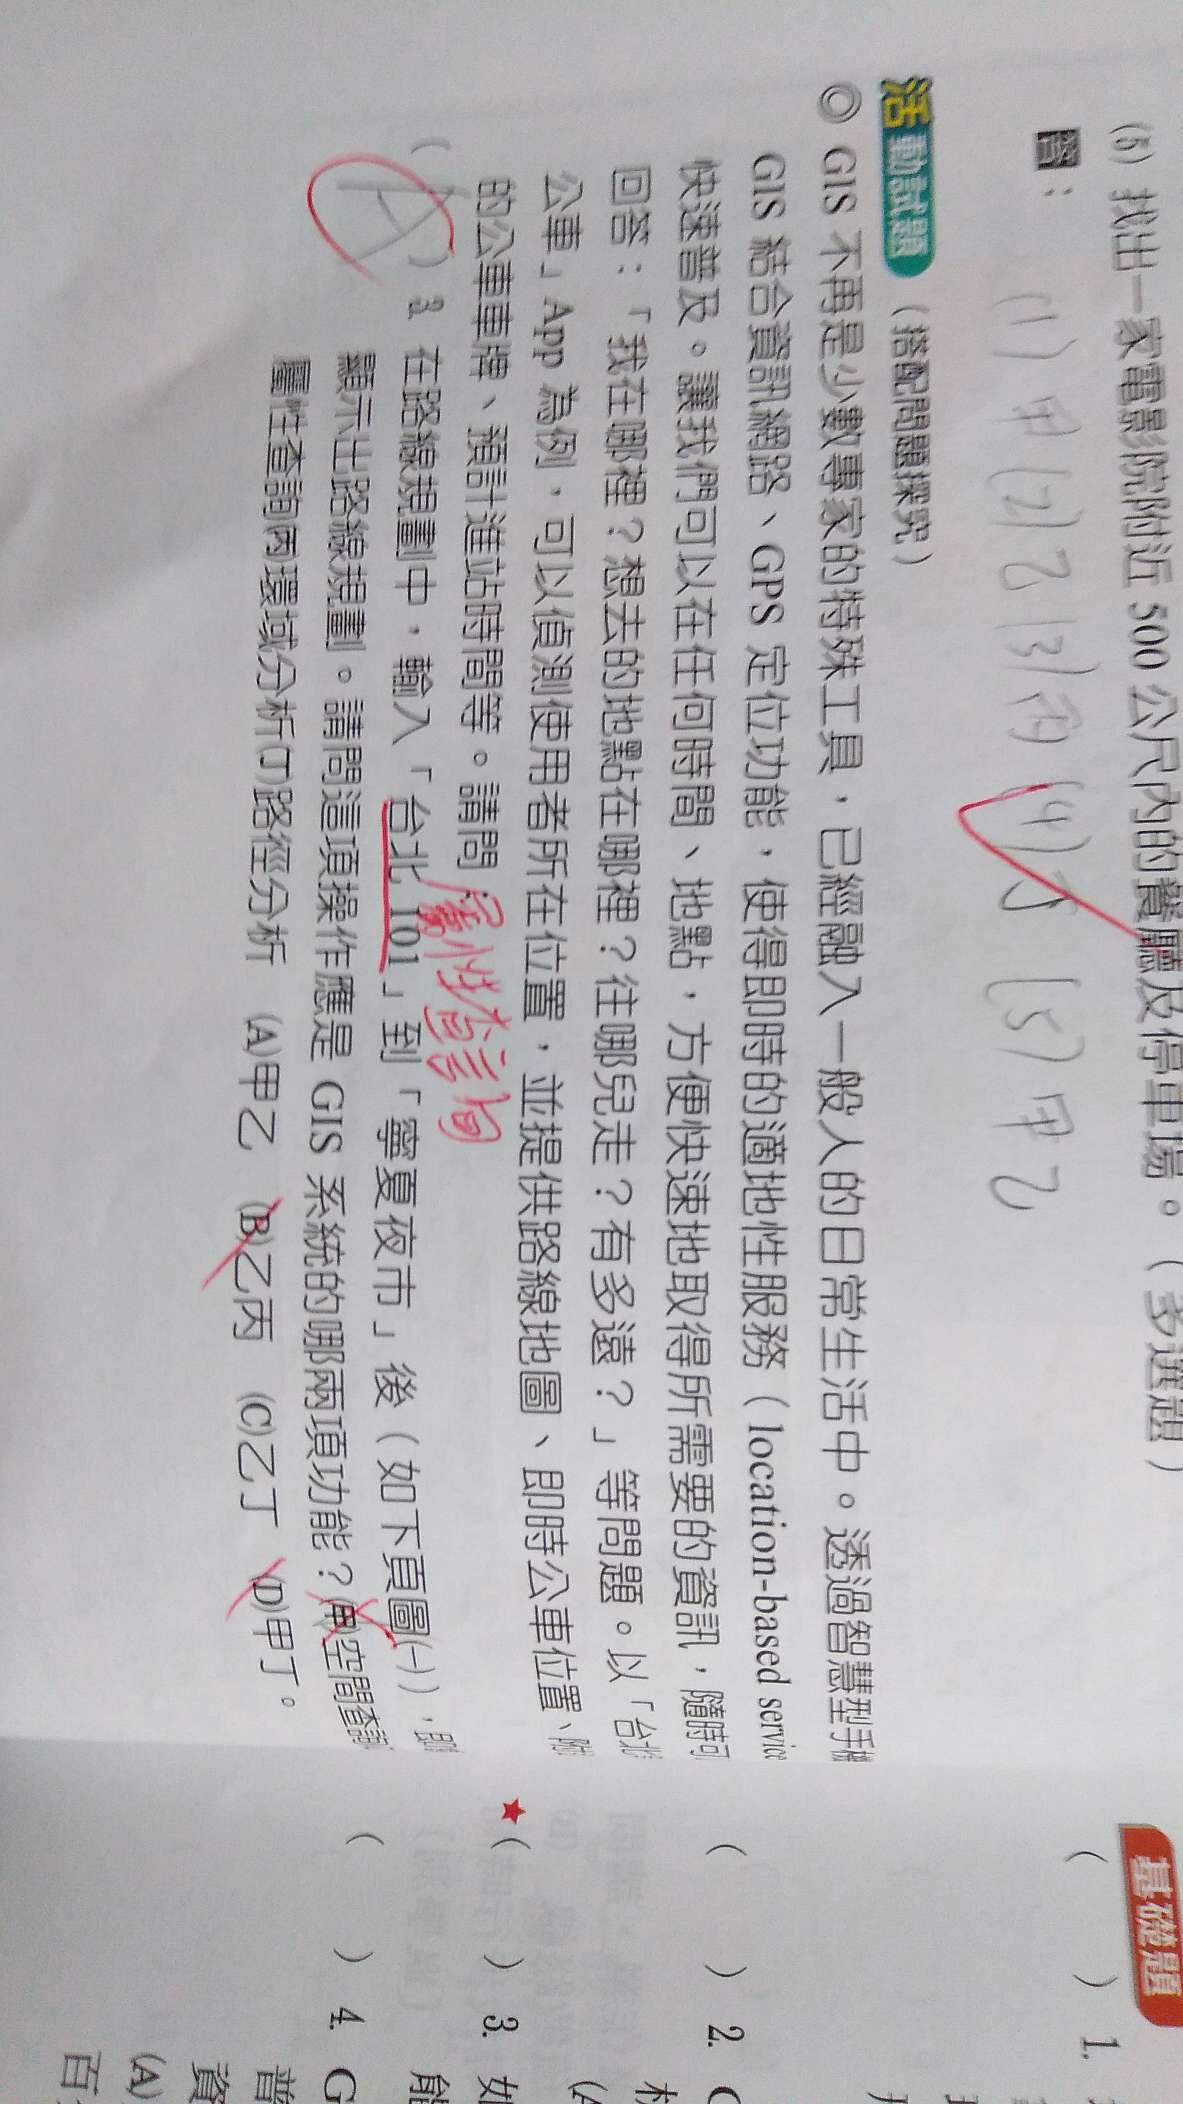 (5) 找出一家電影院附近 500 公尺內的餐廳及停車場。（多選題）
答：
(1) 甲 (2) 乙 (3) 丙 (4) 丁 (5) 甲乙
活動試題（搭配問題探究）
◎ GIS 不再是少數專家的特殊工具，已經融入一般人的日常生活中。透過智慧型手機
GIS 結合資訊網路、GPS 定位功能，使得即時的適地性服務（location-based service
快速普及。讓我們可以在任何時間、地點，方便快速地取得所需要的資訊，隨時可
回答：「我在哪裡？想去的地點在哪裡？往哪兒走？有多遠？」等問題。以「台北
公車」App 為例，可以偵測使用者所在位置，並提供路線地圖、即時公車位置、附
的公車車牌、預計進站時間等。請問：
屬性查詢
( A ) 3. 在路線規劃中，輸入「台北 101」到「寧夏夜市」後（如下頁圖(一)），即
顯示出路線規劃。請問這項操作應是 GIS 系統的哪兩項功能？(甲)空間查詢
屬性查詢(丙)環域分析(丁)路徑分析 (A)甲乙 (B)乙丙 (C)乙丁 (D)甲丁。
基礎題
( ) 1.
( ) 2. C
(A
★( ) 3. 如
能
( ) 4. G
普
資
(A)
百